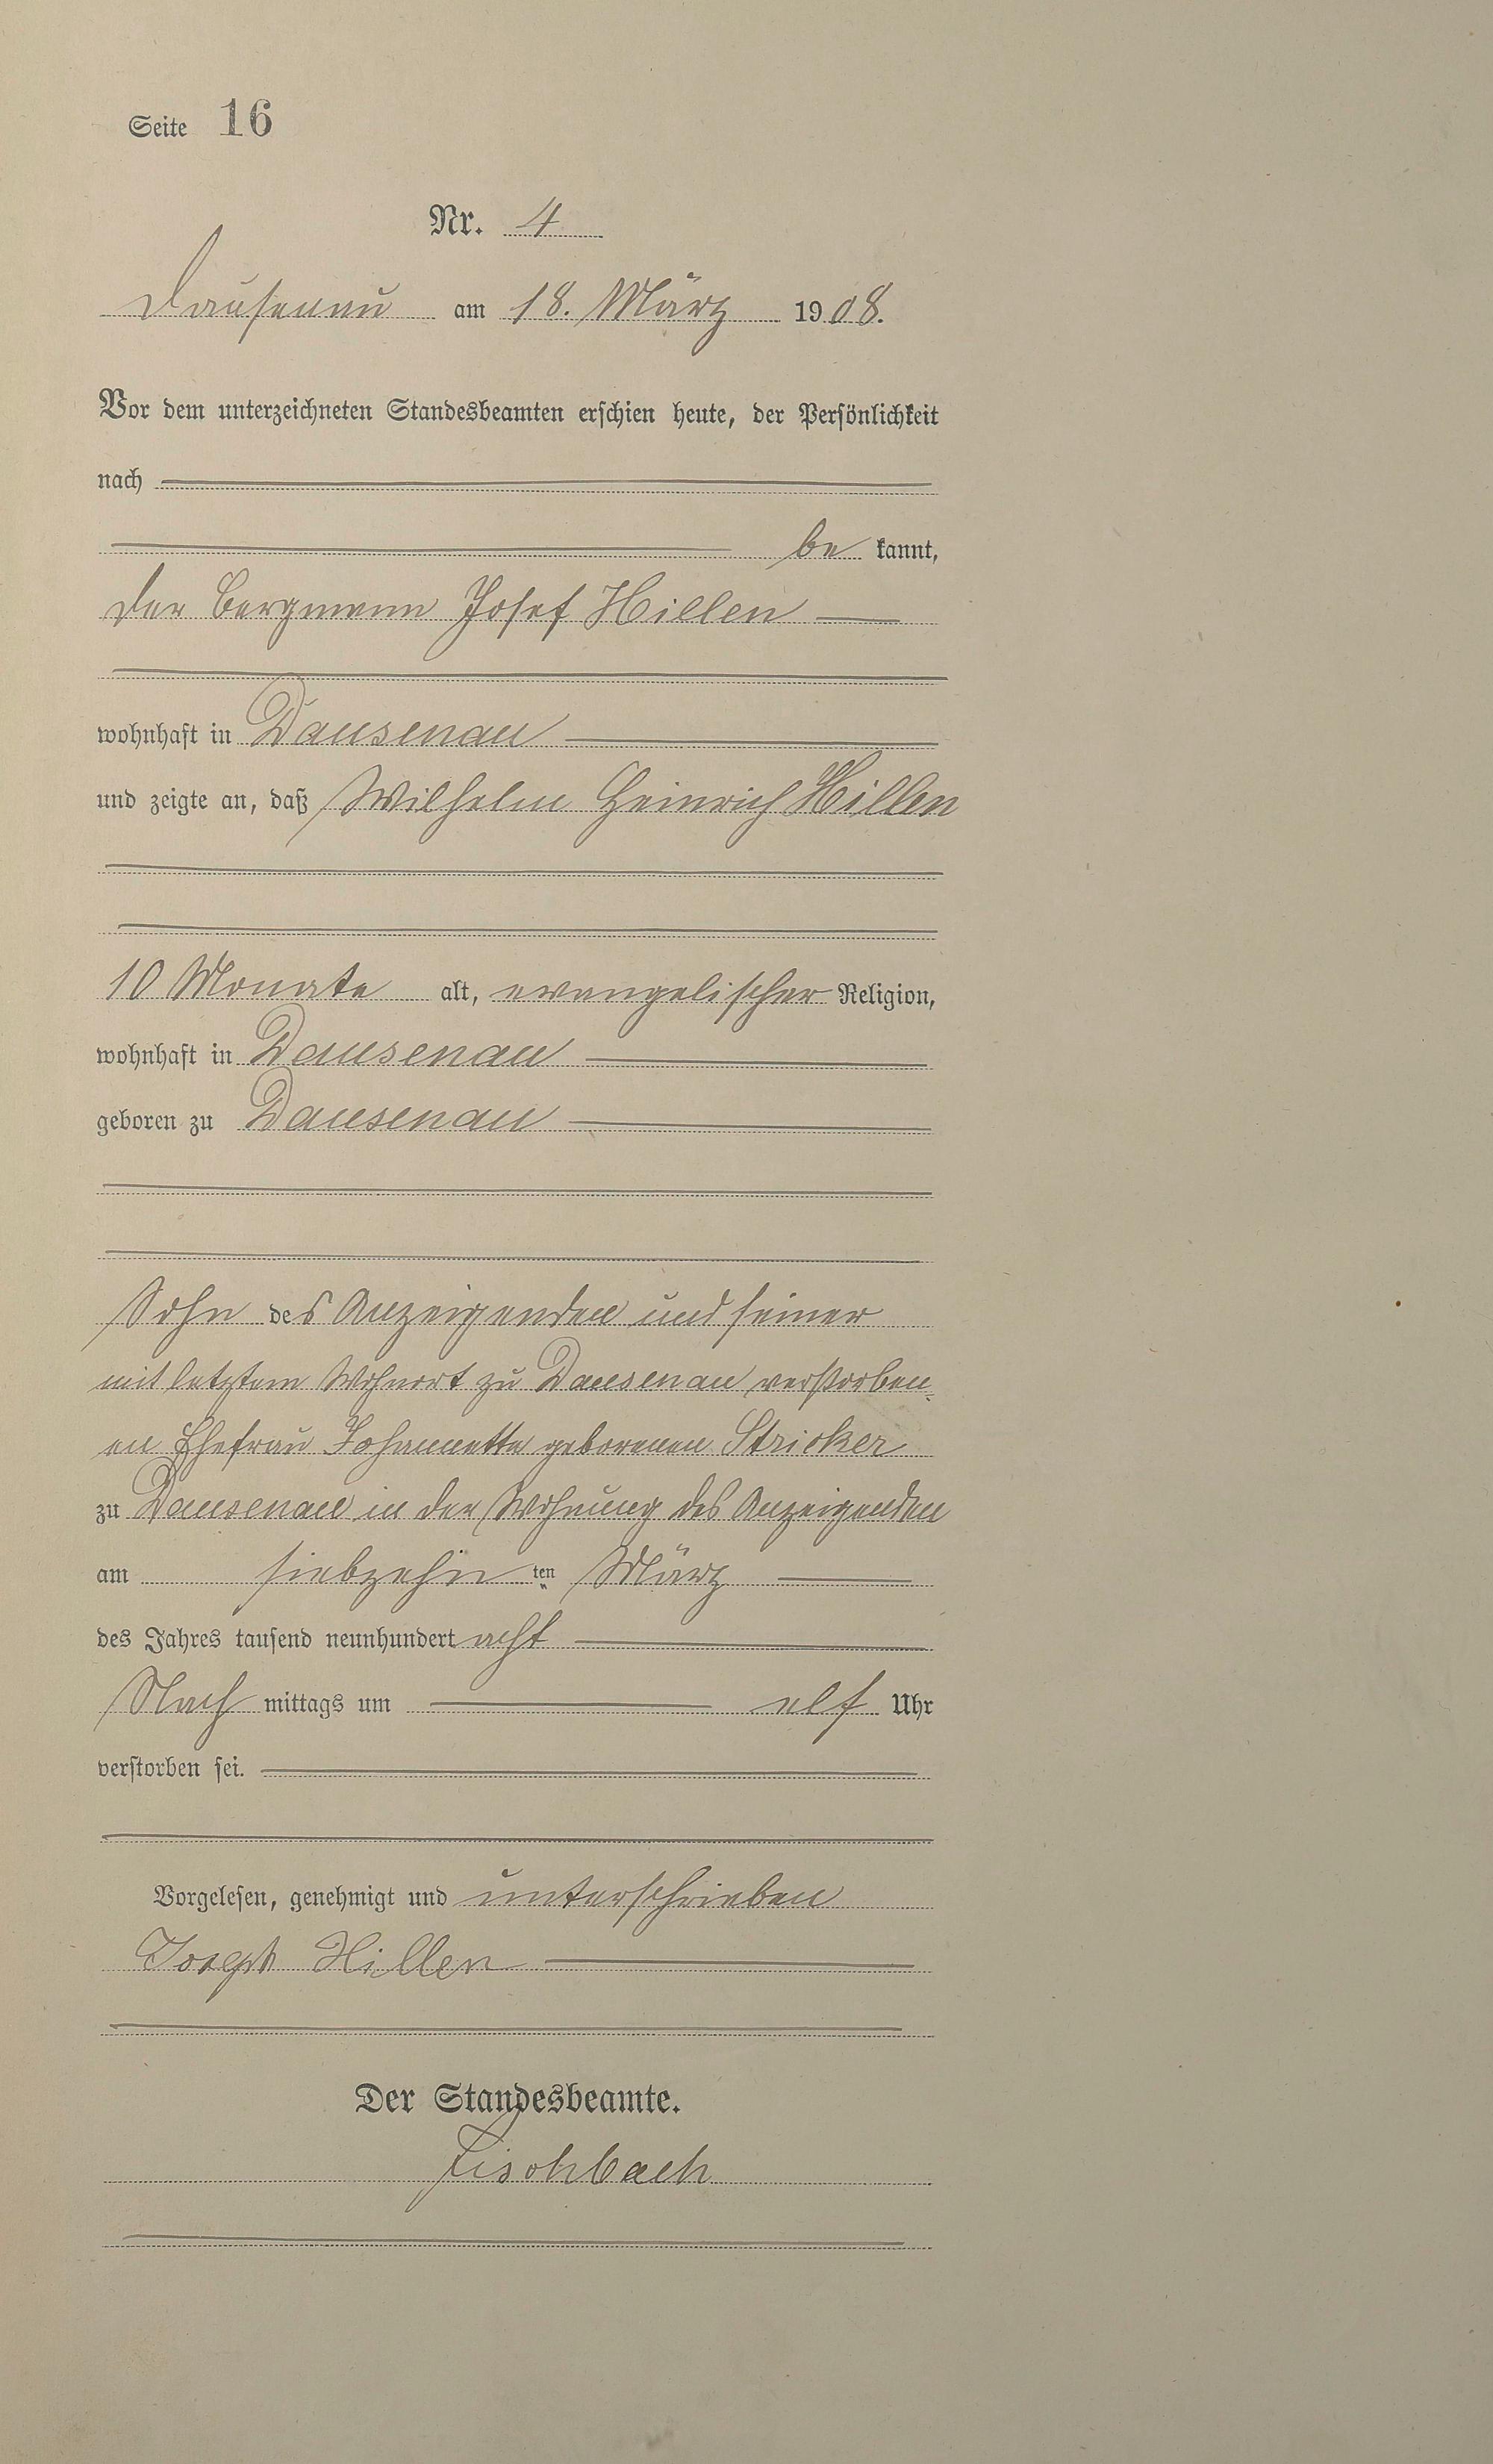 Seite 16
Nr. 4
Dausenau am 18. März 1908.
Vor dem unterzeichneten Standesbeamten erschien heute, der Persönlichkeit
nach
be kannt,
der Bergmann Josef Hillen
wohnhaft in Dausenau
und zeigte an, daß Wilhelm Heinrich Hillen
10 Monate alt, evangelischer Religion,
wohnhaft in Dausenau
geboren zu Dausenau
Sohn des Anzeigenden und seiner
mit letztem Wohnort zu Dausenau verstorben-
en Ehefrau Johannette geborenen Stricker
zu Dausenau in der Wohnung des Anzeigenden
am siebzehn ten März
des Jahres tausend neunhundert acht
Nach mittags um elf Uhr
verstorben sei.
Vorgelesen, genehmigt und unterschrieben
Joseph Hillen
Der Standesbeamte.
Fischbach